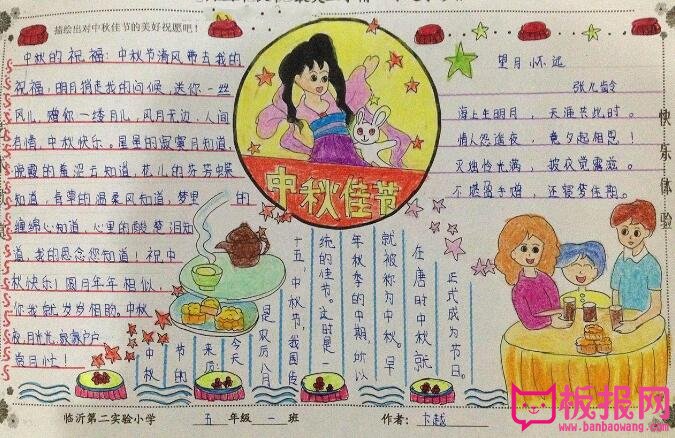 描绘出对中秋佳节的美好祝愿吧！
中秋的祝福：中秋节清风带去我的
祝福，明月捎走我的问候，送你一丝
风儿，赠你一缕月儿，风月无边，人间
有情，中秋快乐。星星的寂寞月知道，
晚霞的羞涩云知道，花儿的芬芳蝶
知道，青草的温柔风知道，梦里 的
缠绵心知道，心里的酸 梦泪知
道，我的思念您知道！祝中
秋快乐！圆月年年相似，
你我 岁岁相 。中秋
月光光，家家户户
中秋佳节
望月怀远
张九龄
海上生明月， 天涯共此时。
情人怨遥夜， 竟夕起相思！
灭烛怜光满， 披衣觉露滋。
不堪盈手赠， 还寝梦佳期。
快乐体验
正式成为节日。
在唐时中秋就
就被称为中秋。早
年秋季的中期，所以
统的佳节。这时是一
十五，中秋节，我国传
今天是农历八月
来历：
节的
中秋
临沂第二实验小学 五 年级 一 班 作者： 卞越
板报网
www.banbaowang.com